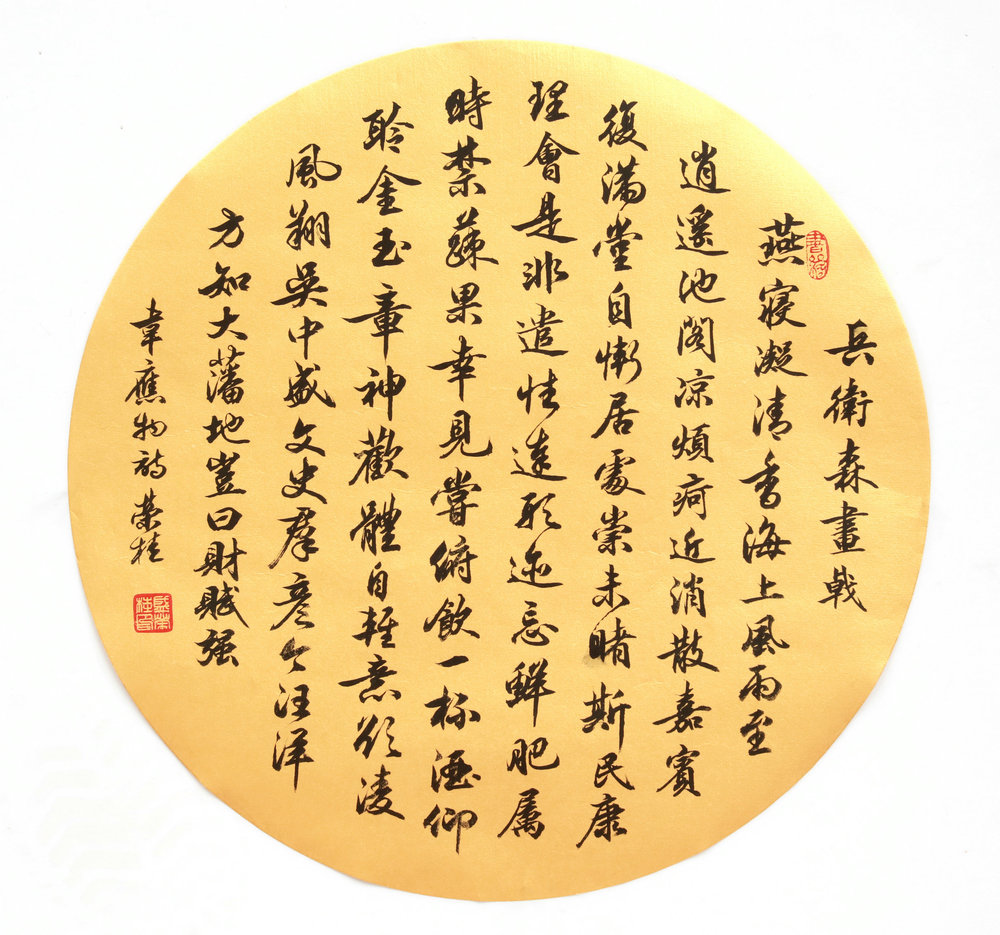 兵衛森畫戟
燕寢凝清香海上風雨至
逍遥池閣凉煩疴近消散嘉賓
復滿堂自慚居處崇未睹斯民康
理會是非遣性達形迹忘鮮肥属
時禁蔬果幸見嘗俯飲一杯酒仰
聆金玉章神歡體自輕意欲凌
風翔吳中盛文史羣彥今汪洋
方知大藩地豈曰財賦强
韋應物詩榮桂
盛榮桂印